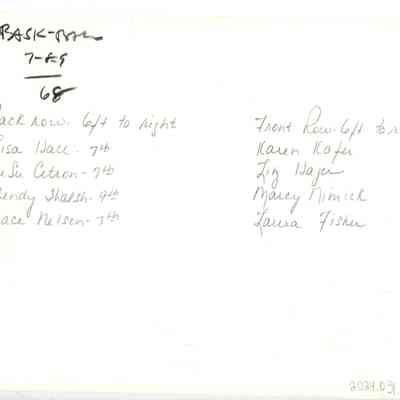 BASK-BALL
7-8-9
68
ack row - left to right
isa Hall - 7th
uSu Citron - 7th
endy Tharsh - 9th
ace Nelson - 7th
Front Row - left to r
Karen Kafer
Liz Hager
Marcy Nimick
Laura Fisher
2024.031.